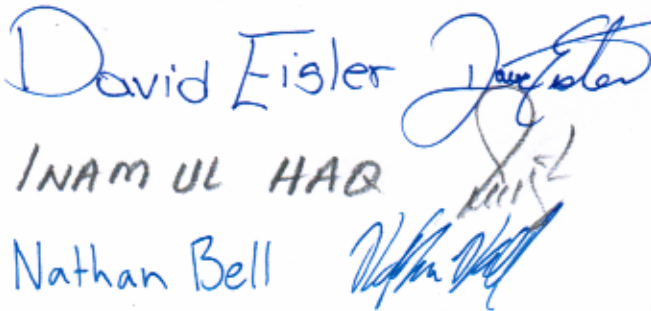 David Eisler Dave Eisler
INAM UL HAQ
Nathan Bell